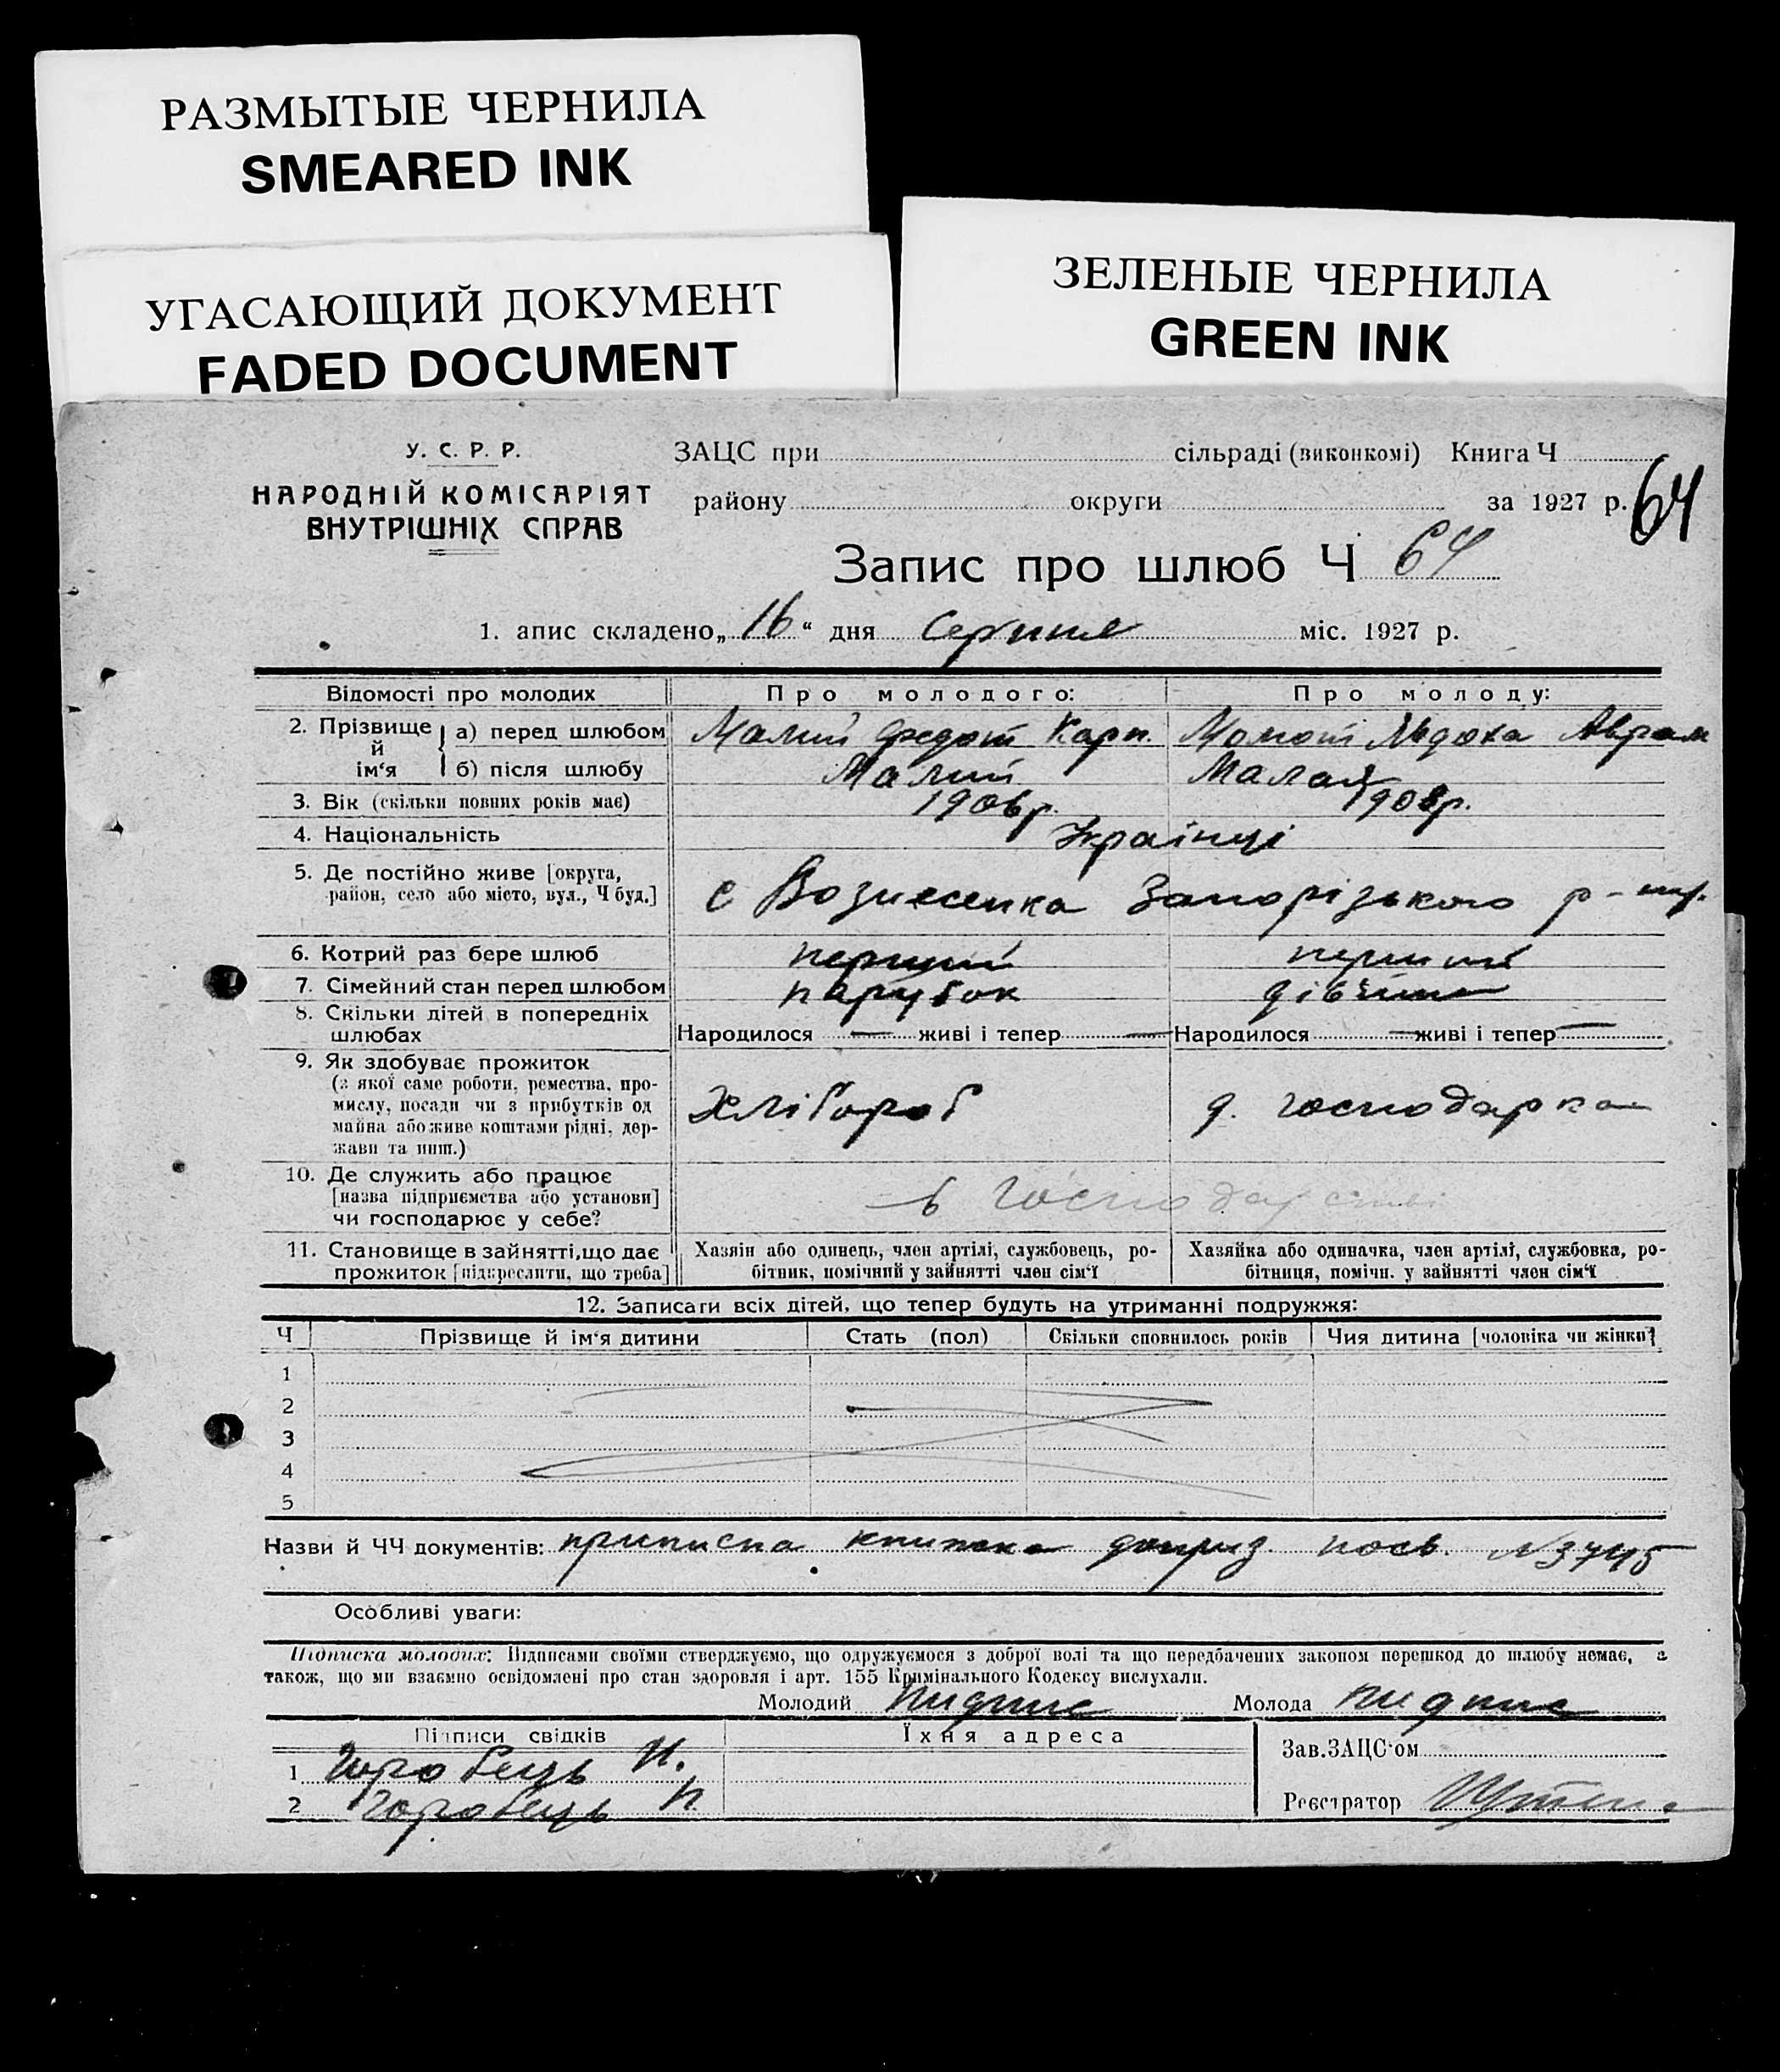 РАЗМЫТЫЕ ЧЕРНИЛА
SMEARED INK
УГАСАЮЩИЙ ДОКУМЕНТ
FADED DOCUMENT
ЗЕЛЕНЫЕ ЧЕРНИЛА
GREEN INK
У. С. Р. Р.
НАРОДНІЙ КОМІСАРІЯТ
ВНУТРІШНІХ СПРАВ
ЗАЦС при сільраді (виконкомі) Книга Ч
району округи за 1927 р. 64
Запис про шлюб Ч 64
1. апис складено „16“ дня Серпня міс. 1927 р.
Відомості про молодих Про молодого: Про молоду:
2. Прізвище й ім‘я а) перед шлюбом Малий Федот Карп. Момот Явдоха Аврам
б) після шлюбу Малий Малая
3. Вік (скільки повних років має) 1906 р. 1908 р.
4. Національність Українці
5. Де постійно живе [округа,
район, село або місто, вул., Ч буд.] с Вознесенка Запорізького р-ну.
6. Котрий раз бере шлюб перший перший
7. Сімейний стан перед шлюбом парубок дівчина
8. Скільки дітей в попередніх
шлюбах Народилося — живі і тепер — Народилося — живі і тепер —
9. Як здобуває прожиток
(з якої саме роботи, ремества, про-
мислу, посади чи з прибутків од
майна або живе коштами рідні, дер-
жави та инш.) Хлібороб д. господарка
10. Де служить або працює
[назва підприємства або установи]
чи господарює у себе? в господарстві
11. Становище в зайнятті, що дає
прожиток [підкреслити, що треба]
Хазяін або одинець, член артілі, службовець, ро-
бітник, помічний у зайнятті член сім‘ї
Хазяйка або одиначка, член артілі, службовка, ро-
бітниця, помічн. у зайнятті член сім‘ї
12. Записати всіх дітей, що тепер будуть на утриманні подружжя:
Ч Прізвище й ім‘я дитини Стать (пол) Скільки сповнилось років Чия дитина [чоловіка чи жінки]
1
2
3
4
5
Назви й ЧЧ документів: приписна книжка доприз. посв. № 3745
Особливі уваги:
Підписка молодих: Підписами своїми стверджуємо, що одружуємося з доброї волі та що передбачених законом перешкод до шлюбу немає, а
також, що ми взаємно освідомлені про стан здоровля і арт. 155 Кримінального Кодексу вислухали.
Молодий пидпис Молода пидпис
Підписи свідків Їхня адреса
1 Горобець И.
2 Горобець П.
Зав. ЗАЦС‘ом
Реєстратор